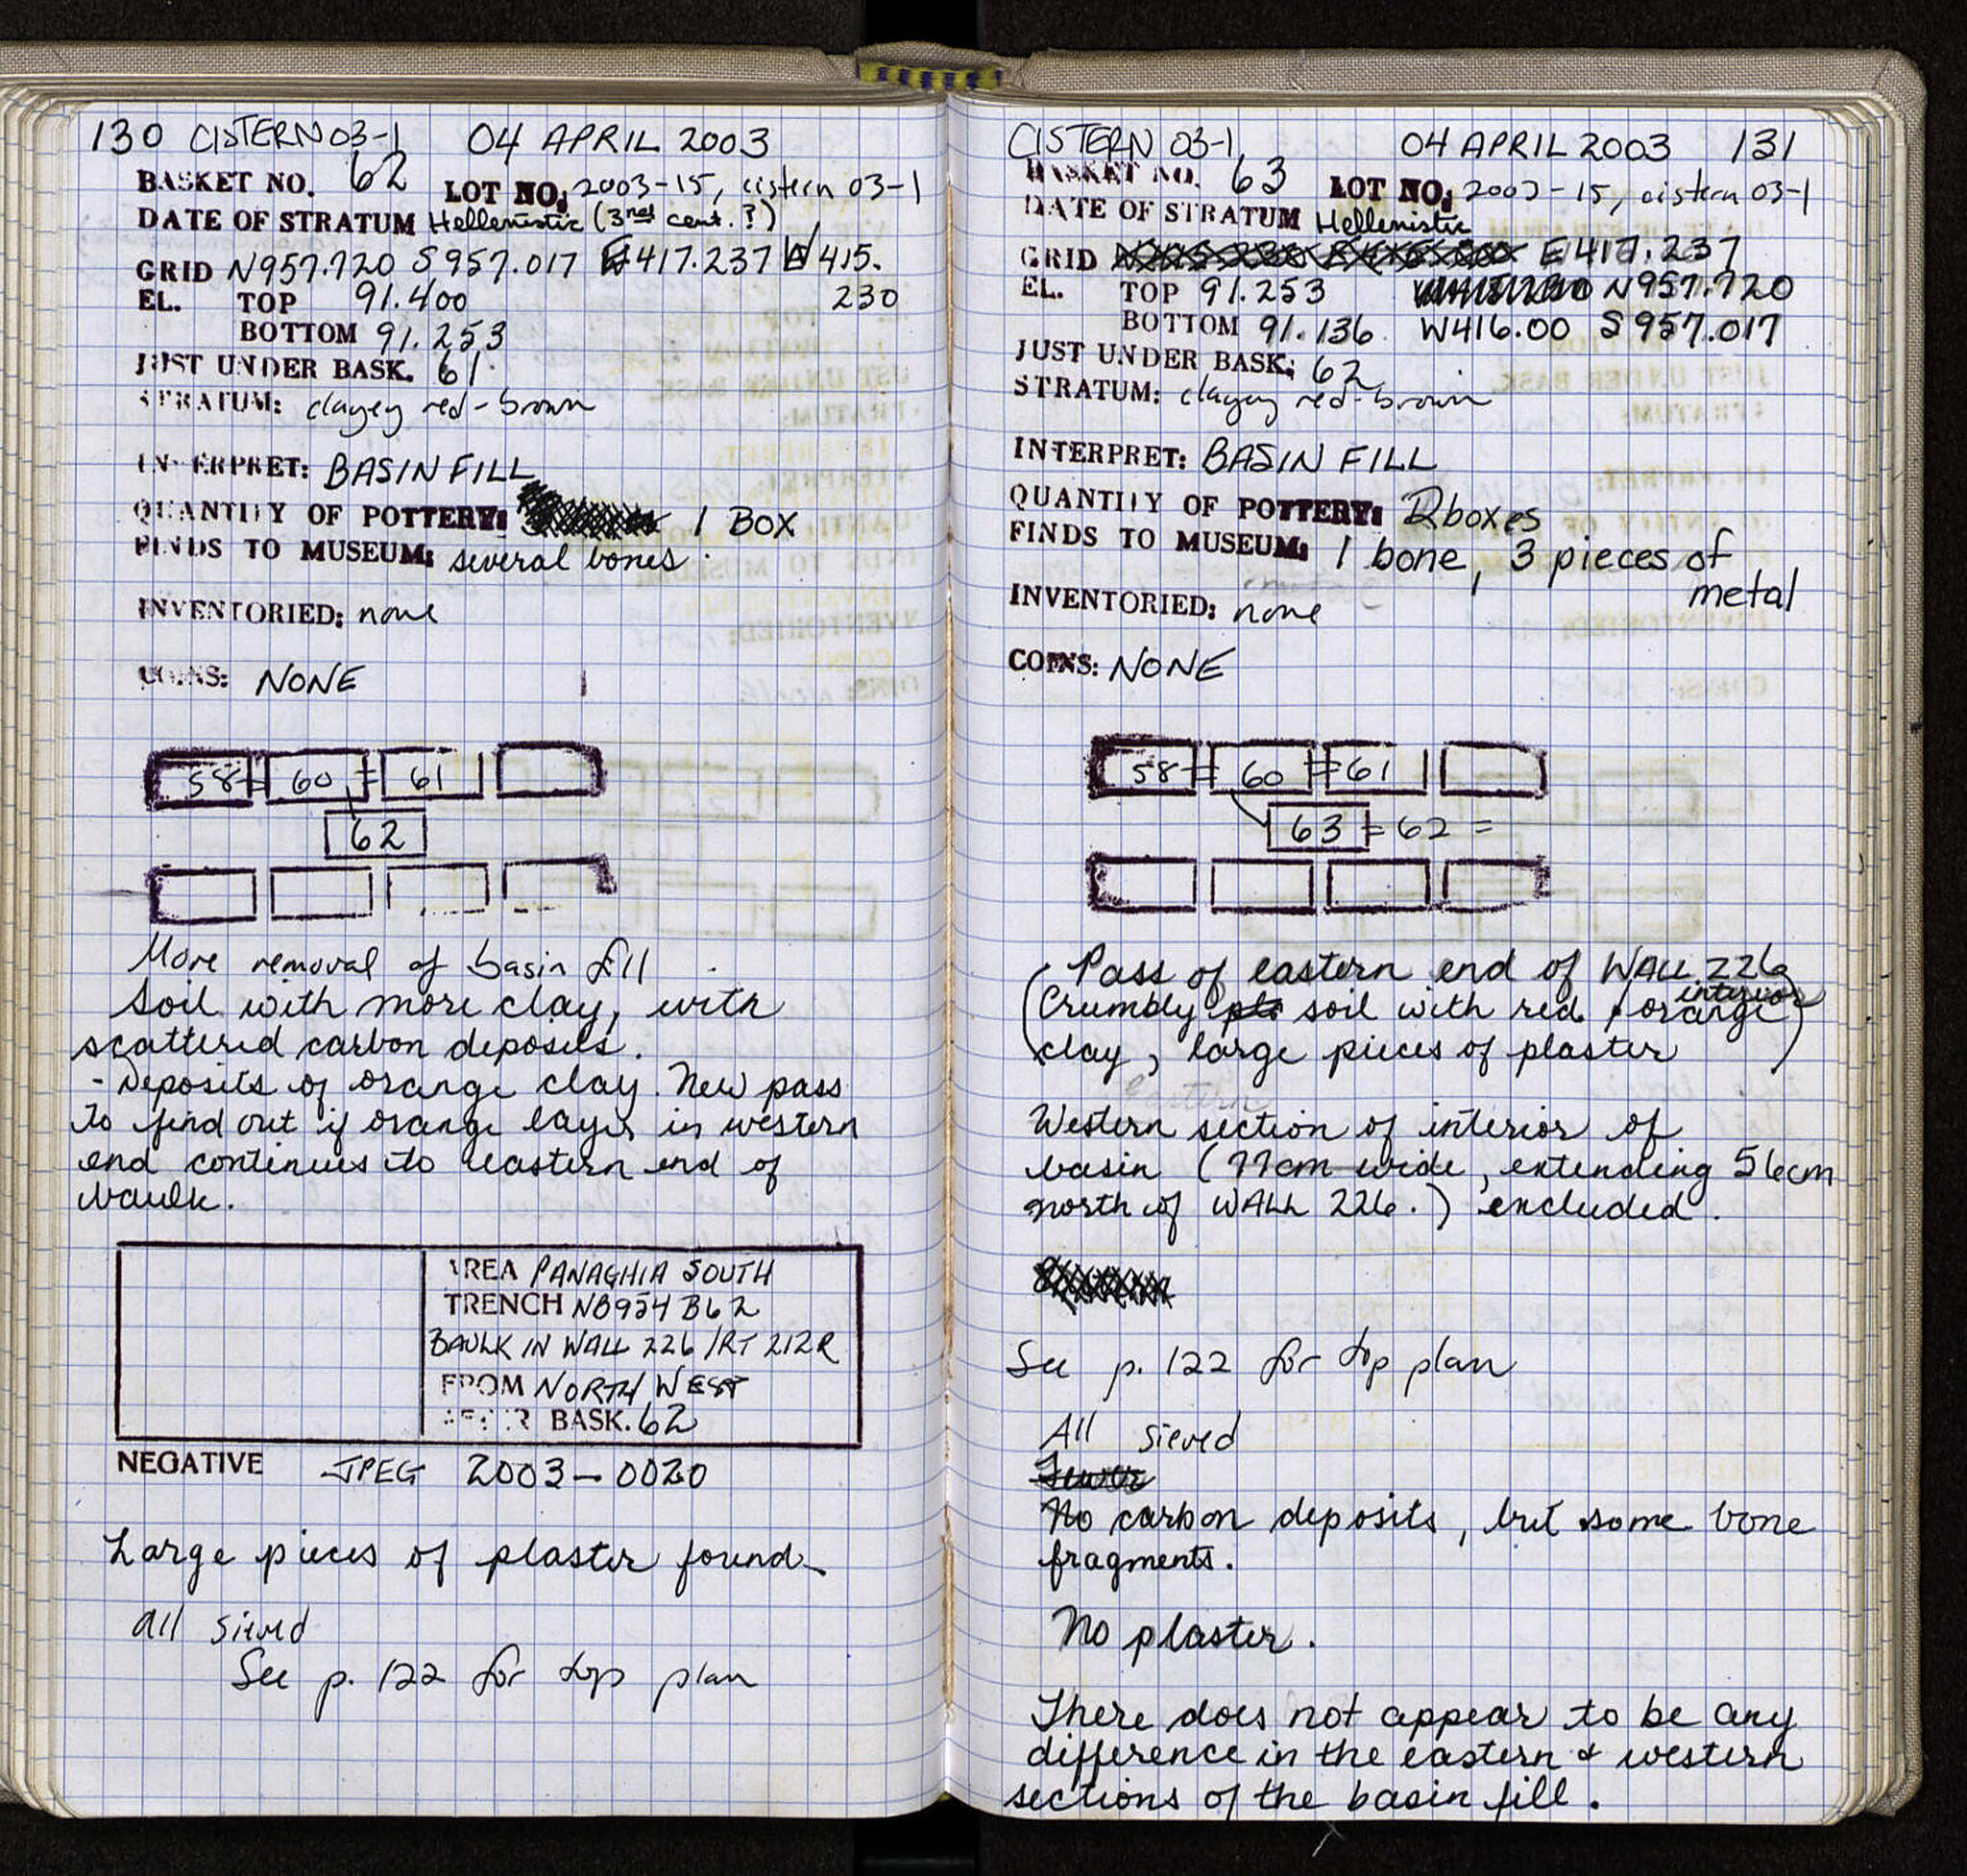 130 CISTERN 03-1 04 APRIL 2003
BASKET NO. 62 LOT NO: 2003-15, cistern 03-1
DATE OF STRATUM Hellenistic (3rd cent. ?)
GRID N957.720 S957.017 E417.237 W415.
230
EL. TOP 91.400
BOTTOM 91.253
JUST UNDER BASK. 61
STRATUM: clayey red-brown
INTERPRET: BASIN FILL
QUANTITY OF POTTERY: 1 BOX
FINDS TO MUSEUM: several bones
INVENTORIED: none
COINS: NONE
58 = 60 = 61
62
More removal of basin fill
Soil with more clay, with
scattered carbon deposits.
- Deposits of orange clay. New pass
to find out if orange layer in western
end continues to eastern end of
baulk.
AREA PANAGHIA SOUTH
TRENCH NB954 B62
BAULK IN WALL 226 /RT 212R
FROM NORTH WEST
AFTER BASK. 62
NEGATIVE JPEG 2003-0020
Large pieces of plaster found
All sieved
See p. 122 for top plan
CISTERN 03-1 04 APRIL 2003 131
BASKET NO. 63 LOT NO: 2003-15, cistern 03-1
DATE OF STRATUM Hellenistic
GRID E417.237
EL. TOP 91.253 N957.720
BOTTOM 91.136 W416.00 S957.017
JUST UNDER BASK: 62
STRATUM: clayey red-brown
INTERPRET: BASIN FILL
QUANTITY OF POTTERY: 2 boxes
FINDS TO MUSEUM: 1 bone, 3 pieces of
metal
INVENTORIED: none
COINS: NONE
58 = 60 = 61
63 = 62 =
Pass of eastern end of WALL 226
interior
(Crumbly soil with red, orange
clay, large pieces of plaster)
Western section of interior of
basin (77cm wide, extending 56cm
north of WALL 226.) excluded.
See p. 122 for top plan
All sieved
No carbon deposits, but some bone
fragments.
No plaster.
There does not appear to be any
difference in the eastern & western
sections of the basin fill.